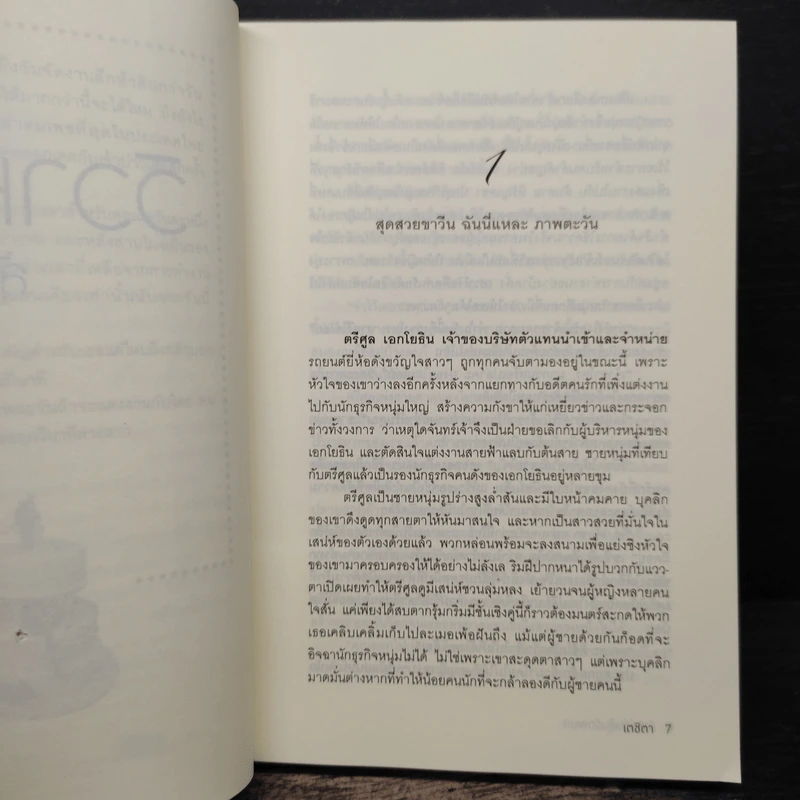 1
สุดสวยขาวีน ฉันนี่แหละ ภาพตะวัน
ตรีศูล เอกโยธิน เจ้าของบริษัทตัวแทนนำเข้าและจำหน่าย
รถยนต์ยี่ห้อดังขวัญใจสาวๆ ถูกทุกคนจับตามองอยู่ในขณะนี้ เพราะ
หัวใจของเขาว่างลงอีกครั้งหลังจากแยกทางกับอดีตคนรักที่เพิ่งแต่งงาน
ไปกับนักธุรกิจหนุ่มใหญ่ สร้างความกังขาให้แก่เหยี่ยวข่าวและกระจอก
ข่าวทั้งวงการ ว่าเหตุใดจันทร์เจ้าจึงเป็นฝ่ายขอเลิกกับผู้บริหารหนุ่มของ
เอกโยธิน และตัดสินใจแต่งงานสายฟ้าแลบกับต้นสาย ชายหนุ่มที่เทียบ
กับตรีศูลแล้วเป็นรองนักธุรกิจคนดังของเอกโยธินอยู่หลายขุม
ตรีศูลเป็นชายหนุ่มรูปร่างสูงล่ำสันและมีใบหน้าคมคาย บุคลิก
ของเขาดึงดูดทุกสายตาให้หันมาสนใจ และหากเป็นสาวสวยที่มั่นใจใน
เสน่ห์ของตัวเองด้วยแล้ว พวกหล่อนพร้อมจะลงสนามเพื่อแย่งชิงหัวใจ
ของเขามาครอบครองให้ได้อย่างไม่ลังเล ริมฝีปากหนาได้รูปบวกกับแวว-
ตาเปิดเผยทำให้ตรีศูลดูมีเสน่ห์ชวนลุ่มหลง เย้ายวนจนผู้หญิงหลายคน
ใจสั่น แค่เพียงได้สบตากรุ้มกริ่มมีชั้นเชิงคู่นี้ก็ราวต้องมนตร์สะกดให้พวก
เธอเคลิบเคลิ้มเก็บไปละเมอเพ้อฝันถึง แม้แต่ผู้ชายด้วยกันก็อดที่จะ
อิจฉานักธุรกิจหนุ่มไม่ได้ ไม่ใช่เพราะเขาสะดุดตาสาวๆ แต่เพราะบุคลิก
มาดมั่นต่างหากที่ทำให้น้อยคนนักที่จะกล้าลองดีกับผู้ชายคนนี้
เตชิตา 7